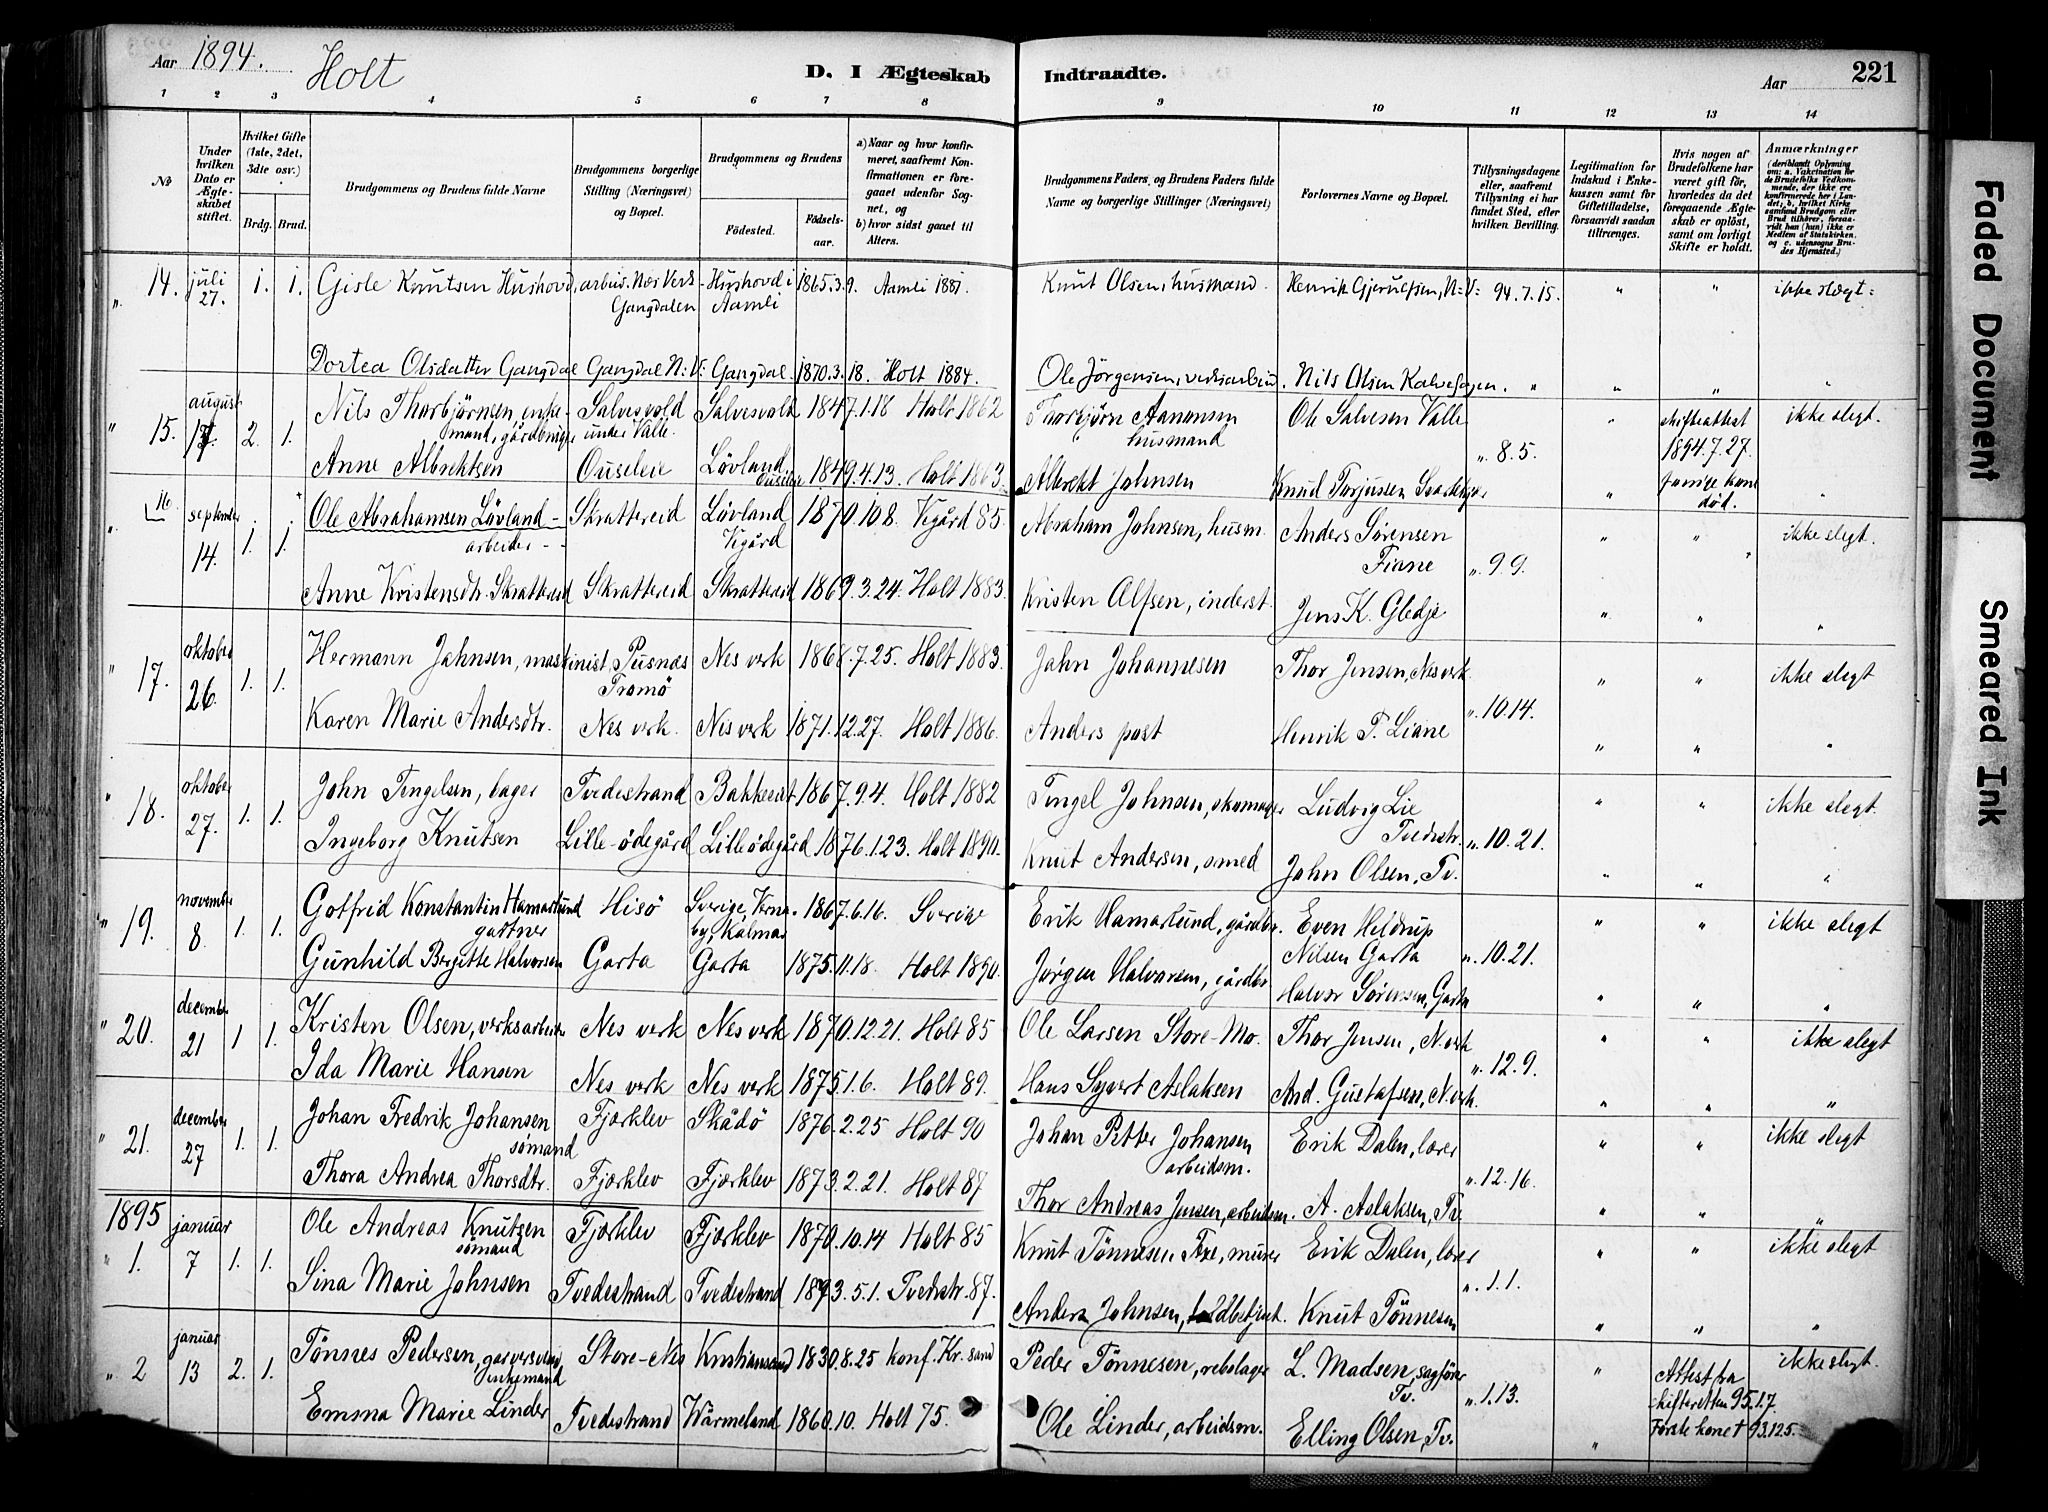 Aar 1894. Holt
D. I Ægteskab Indtraadte.
Aar 221
1 2 3 4 5 6 7 8 9 10 11 12 13 14
No
Under hvilken Dato er Ægteskabet stiftet.
Hvilket Gifte (1ste, 2det, 3die osv.)
Brdg. Brud.
Brudgommens og Brudens fulde Navne
Brudgommens borgerlige Stilling (Næringsvei) og Bopæl.
Brudgommens og Brudens
Fødested.
Fødselsaar.
a) Naar og hvor konfirmeret, saafremt Konfirmationen er foregaaet udenfor Sognet, og
b) hvor sidst gaaet til Alters.
Brudgommens Faders, og Brudens Faders fulde Navne og borgerlige Stillinger (Næringsvei)
Forlovernes Navne og Bopæl.
Tillysningsdagene eller, saafremt Tillysning ei har fundet Sted, efter hvilken Bevilling.
Legitimation for Indskud i Enkekassen samt for Giftetilladelse, forsaavidt saadan tiltrænges.
Hvis nogen af Brudefolkene har været gift før, hvorledes da det foregaaende Ægteskab er opløst, samt om lovligt Skifte er holdt.
Anmærkninger (deriblandt Oplysning om: a. Vakcination for de Brudefolks Vedkommende, der ikke ere konfirmerede her i Landet; b, hvilket Kirkesamfund Brudgom eller Brud tilhører, forsaavidt han (hun) ikke er Medlem af Statskirken. og c. udensogns Brudes Hjemsted.)
" 14. juli 27. 1. 1. Gisle Knutsen Hushovd, arbeid. Nes Verk Gangdalen Hushovd i Aamli 1865.3.9. Aamli 1881. Knut Olsen, husmand. Henrik Gjerulfsen, N:V: 94.7.15. " " ikke slegt:
Dortea Olsdatter Gangdal Gangdal N:V: Gangdal. 1870.3.18. Holt 1884. Ole Jörgensen, verksarbeid. Nils Olsen Kalvehagen. " " " "
" 15. august 17. 2. 1. Nils Thorbjörnsen, enkemand, gårdbruger Salvesvold under Valle. Salvesvold 1847.1.18 Holt 1862 Thorbjørn Aanonsen husmand Ole Salvesen Valle " 8.5. " skifteattest 1894.7.27. ikke slegt.
Anne Albrektsen Ouseleie Lövland, Ouseleie 1849.4.13. Holt 1863. Albrekt Johnsen Knud Torjussen " forrige kone død. "
" 16 september 14. 1. 1. Ole Abrahamsen Lövland arbeider Skrattereid Lövland Vegård 1870.10.8. Vegård 85. Abraham Johnsen, husm. Anders Sørensen Fiane " 9.9. " " ikke slegt.
Anne Kristensdtr. Skrattereid Skrattereid Skrattereid 1869.3.24. Holt 1883. Kristen Alfsen, inderst. Jens K. Gledje " " "
" 17. oktober 26. 1. 1. Hermann Jahnsen, maskinist. Pusnæs Tromö Nes verk 1868.7.25. Holt 1883. Jahn Johannesen Thor Jensen, Nes verk. " 10.14. " " ikke slegt
Karen Marie Andersdtr. Nes verk. Nes verk 1871.12.27. Holt 1886. Anders post Henrik P. Liane " " "
" 18. oktober 27. 1. 1. John Tengelsen, bager Tvedestrand Bakkereiet 1867.9.4. Holt 1882 Tengel Johnsen, skomager Ludvig Lie Tvedestr. " 10.21. " " ikke slegt
Ingeborg Knutsen Lille-ödegård Lilleödegård 1876.1.23. Holt 1890. Knut Andersen, smed John Olsen, Tv. " " "
" 19. november 8. 1. 1. Gotfrid Konstantin Hamarlund gartner Hisö Sverige, Vernaby, Kalmar 1867.6.16. Sverige Erik Hamarlund, gårdbr. Even Heldrup Nilsen Garta " 10.21. " " ikke slegt
Gunhild Bergette Halvorsen Garta Garta 1875.11.18. Holt 1890. Jørgen Halvorsen, gårdbr Halvor Sørensen, Garta " " "
" 20. december 21 1 1. Kristen Olsen, verksarbeider Nes verk Nes verk 1870.12.21. Holt 85 Ole Larsen Store-Mo. Thor Jensen, N. verk " 12.9. " " ikke slegt
Ida Marie Hansen Nes verk Nes verk 1875.1.6. Holt 89. Hans Syvert Aslaksen And. Gustafsen, N. verk. " " "
" 21. december 27 1. 1. Johan Fredrik Johansen sømand Fjærklev Skådö 1876.2.25 Holt 90 Johan Petter Johansen arbeidsm. Erik Dalen, lærer " 12.16. " " ikke slegt
Thora Andrea Thorsdtr. Fjærklev Fjærklev 1873.2.21. Holt 87 Thor Andreas Jensen, arbeidsm. A. Aslaksen, Tv. " " "
1895
" 1. januar 7 1. 1. Ole Andreas Knutsen sömand Fjærklev Fjærklev 1870.10.14 Holt 85 Knut Tönnesen Fxe, murer Erik Dalen, lærer " 1.1. " " ikke slegt
Sina Marie Johnsen Tvedestrand Tvedestrand 1873.5.1. Tvedestr. 87. Anders Johnsen, toldbetjent. Knut Tönnesen " " "
" 2 januar 13 2. 1. Tönnes Pedersen, garversvend enkemand Store-Nes Kristiansand 1830.8.25 konf. Kr.sand Peder Tönnesen, rebslager L. Madsen, sagfører Tv. " 1.13. " Attest fra skifteretten 95.1.7. ikke slegt.
Emma Marie Linder Tvedestrand Wärmeland 1860.10. Holt 75. Ole Linder, arbeidsm. Elling Olsen, Tv. " Første kone † 93.12.5.
Faded Document
Smeared Ink